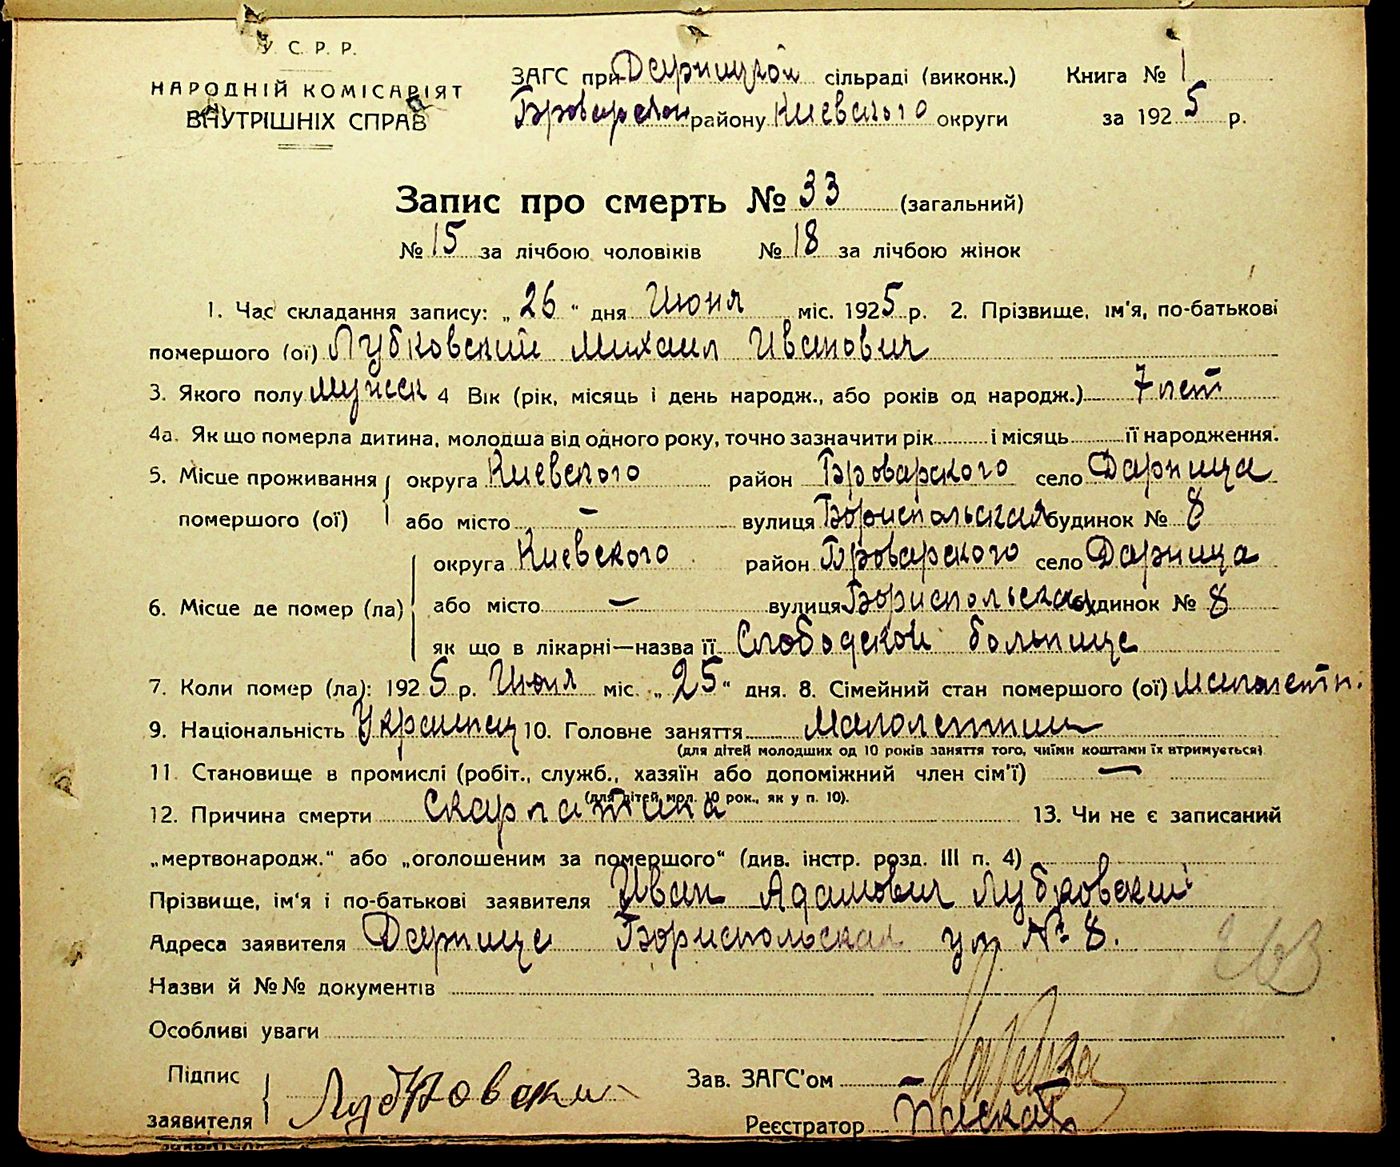 У. С. Р. Р.
НАРОДНІЙ КОМІСАРІЯТ
ВНУТРІШНІХ СПРАВ
ЗАГС при Дарницкой сільраді (виконк.) Книга № 1
Броварском району Киевского округи за 1925 р.
Запис про смерть № 33 (загальний)
№ 15 за лічбою чоловіків № 18 за лічбою жінок
1. Час складання запису: „26“ дня Июня міс. 1925 р. 2. Прізвище, ім'я, по-батькові
помершого (ої) Лубковский Михаил Иванович
3. Якого полу мужск 4 Вік (рік, місяць і день народж., або років од народж.) 7 лет
4а. Як що померла дитина, молодша від одного року, точно зазначити рік і місяць її народження.
5. Місце проживання округа Киевского район Броварского село Дарница
помершого (ої) або місто — вулиця Бориспольская будинок № 8
округа Киевского район Броварского село Дарница
6. Місце де помер (ла) або місто — вулиця Бориспольская будинок № 8
як що в лікарні—назва її Слободской больнице
7. Коли помер (ла): 1925 р. Июня міс. „25“ дня. 8. Сімейний стан помершого (ої) Малолетн.
9. Національність Украинец 10. Головне заняття Малолетний
(для дітей молодших од 10 років заняття того, чиїми коштами їх втримується)
11. Становище в промислі (робіт., служб., хазяїн або допоміжний член сім'ї) —
(для дітей мол. 10 рок., як у п. 10).
12. Причина смерти скарлатина 13. Чи не є записаний
„мертвонародж.“ або „оголошеним за помершого“ (див. інстр. розд. III п. 4)
Прізвище, ім'я і по-батькові заявителя Иван Адамович Лубковский
Адреса заявителя Дарнице Бориспольская ул № 8.
Назви й №№ документів
263
Особливі уваги
Підпис
заявителя Лубковский
Зав. ЗАГС'ом
Реєстратор